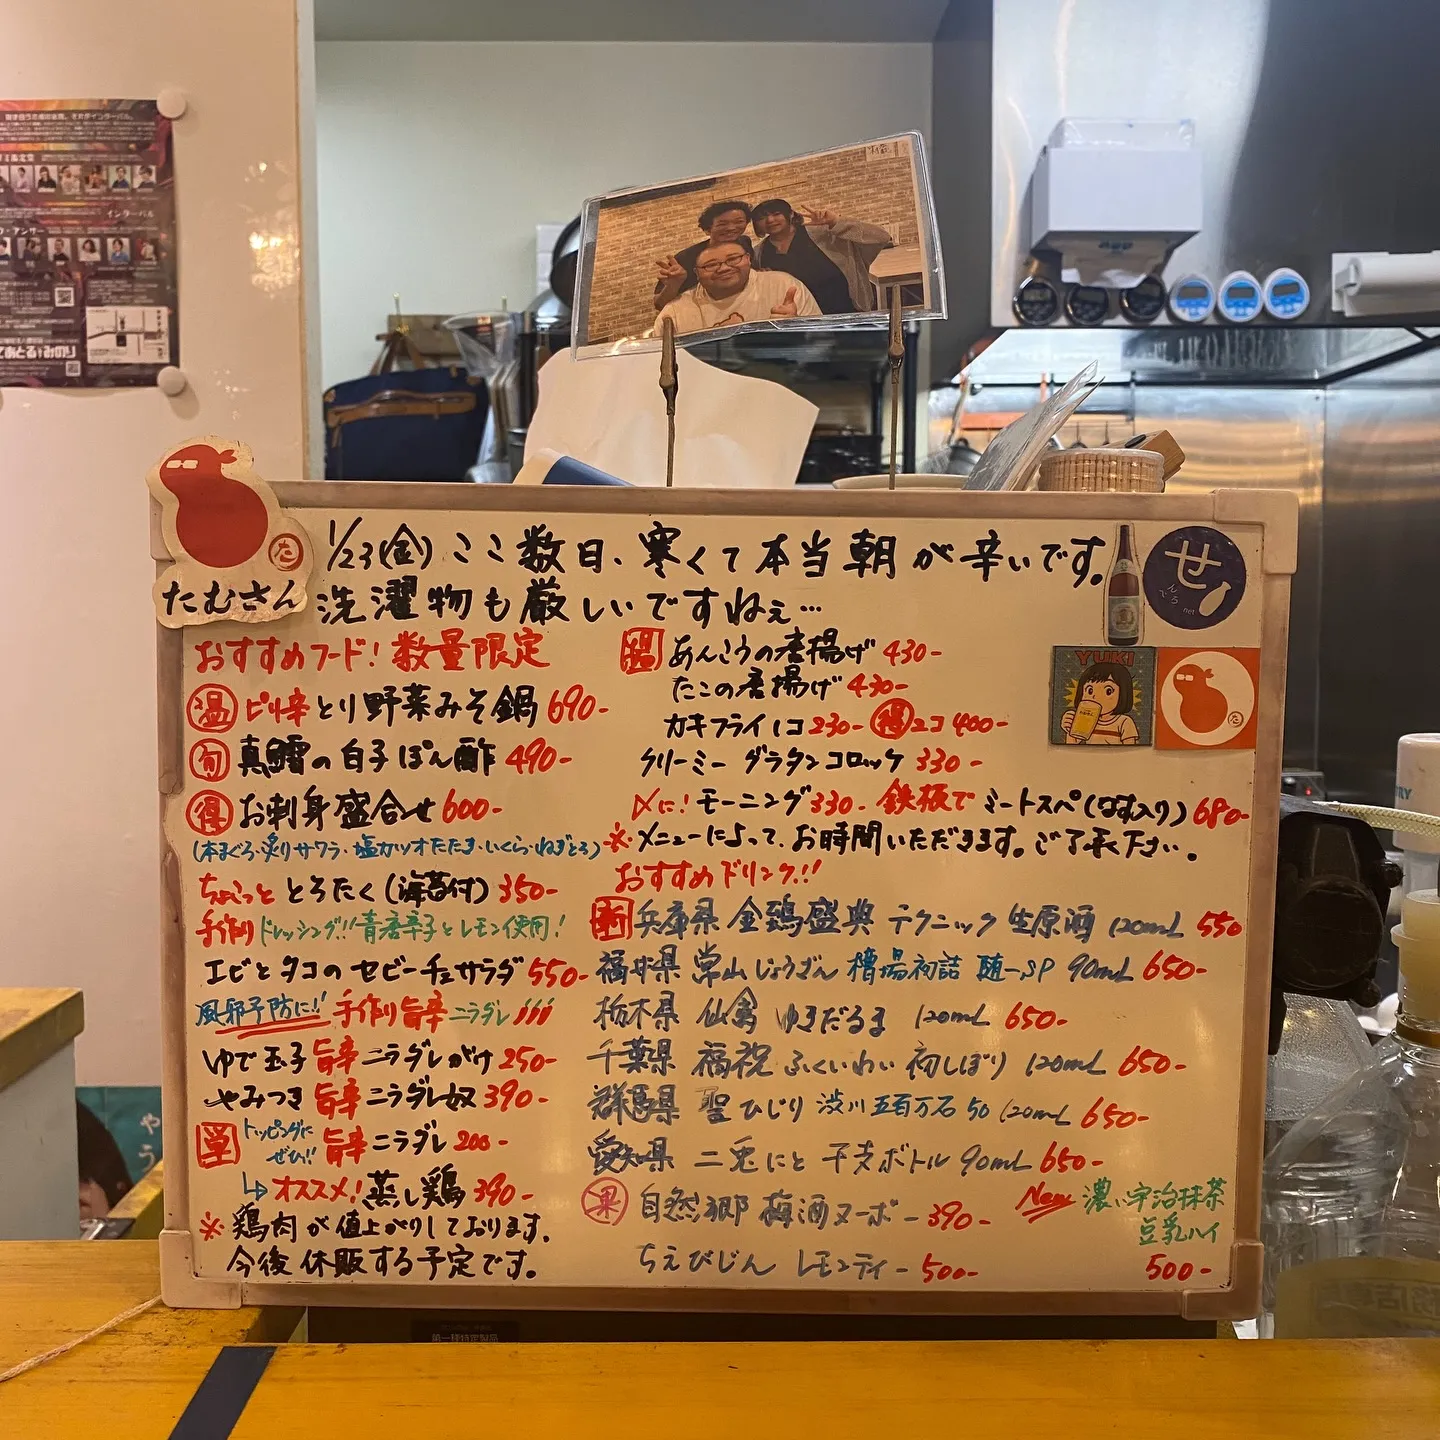 たむさん
1/23(金) ここ数日、寒くて本当朝が辛いです。
洗濯物も厳しいですねぇ…
せ
んべろ
net
YUKI
おすすめフード! 数量限定
温 ピリ辛とり野菜みそ鍋 690-
旬 真鱈の白子ぽん酢 490-
得 お刺身盛合せ 600-
(本まぐろ・炙りサワラ・塩カツオたたき・いくら・ねぎとろ)
ちょこっと とろたく(海苔付) 350-
手作りドレッシング!!青唐辛子とレモン使用!
エビとタコのセビーチェサラダ 550-
風邪予防に!! 手作り旨辛ニラダレ
ゆで玉子 旨辛ニラダレがけ 250-
やみつき 旨辛ニラダレ奴 390-
単 トッピングに ぜひ!! 旨辛ニラダレ 200-
↳ オススメ! 蒸し鶏 390-
※鶏肉が値上がりしております。
今後休販する予定です。
温 あんこうの唐揚げ 430-
たこの唐揚げ 430-
カキフライ 1コ 230- 得 2コ 400-
クリーミーグラタンコロッケ 330-
〆に! モーニング 330- 鉄板で ミートスペ(なす入り) 680-
※メニューによって、お時間いただきます。ご了承下さい。
おすすめドリンク!!
新 兵庫県 金鵄盛典 テクニック 生原酒 120mL 550
福井県 常山じょうざん 槽場初詰 随一SP 90mL 650-
栃木県 仙禽 ゆきだるま 120mL 650-
千葉県 福祝 ふくいわい 初しぼり 120mL 650-
群馬県 聖ひじり 渋川五百万石50 120mL 650-
愛知県 二兎にと 干支ボトル 90mL 650-
果 自然郷 梅酒ヌーボー 390-
ちえびじん レモンティー 500-
New 濃い宇治抹茶
豆乳ハイ
500-